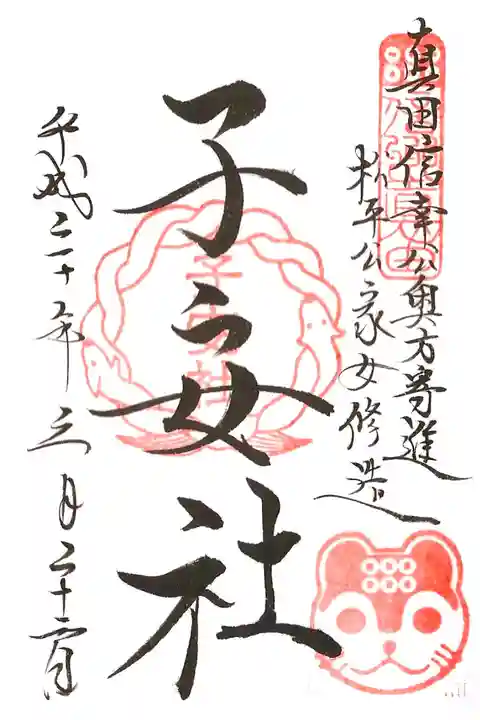 真田信幸公奥方寄進
松平公家女修造
子安社
子安社
平成二十八年三月二十二日